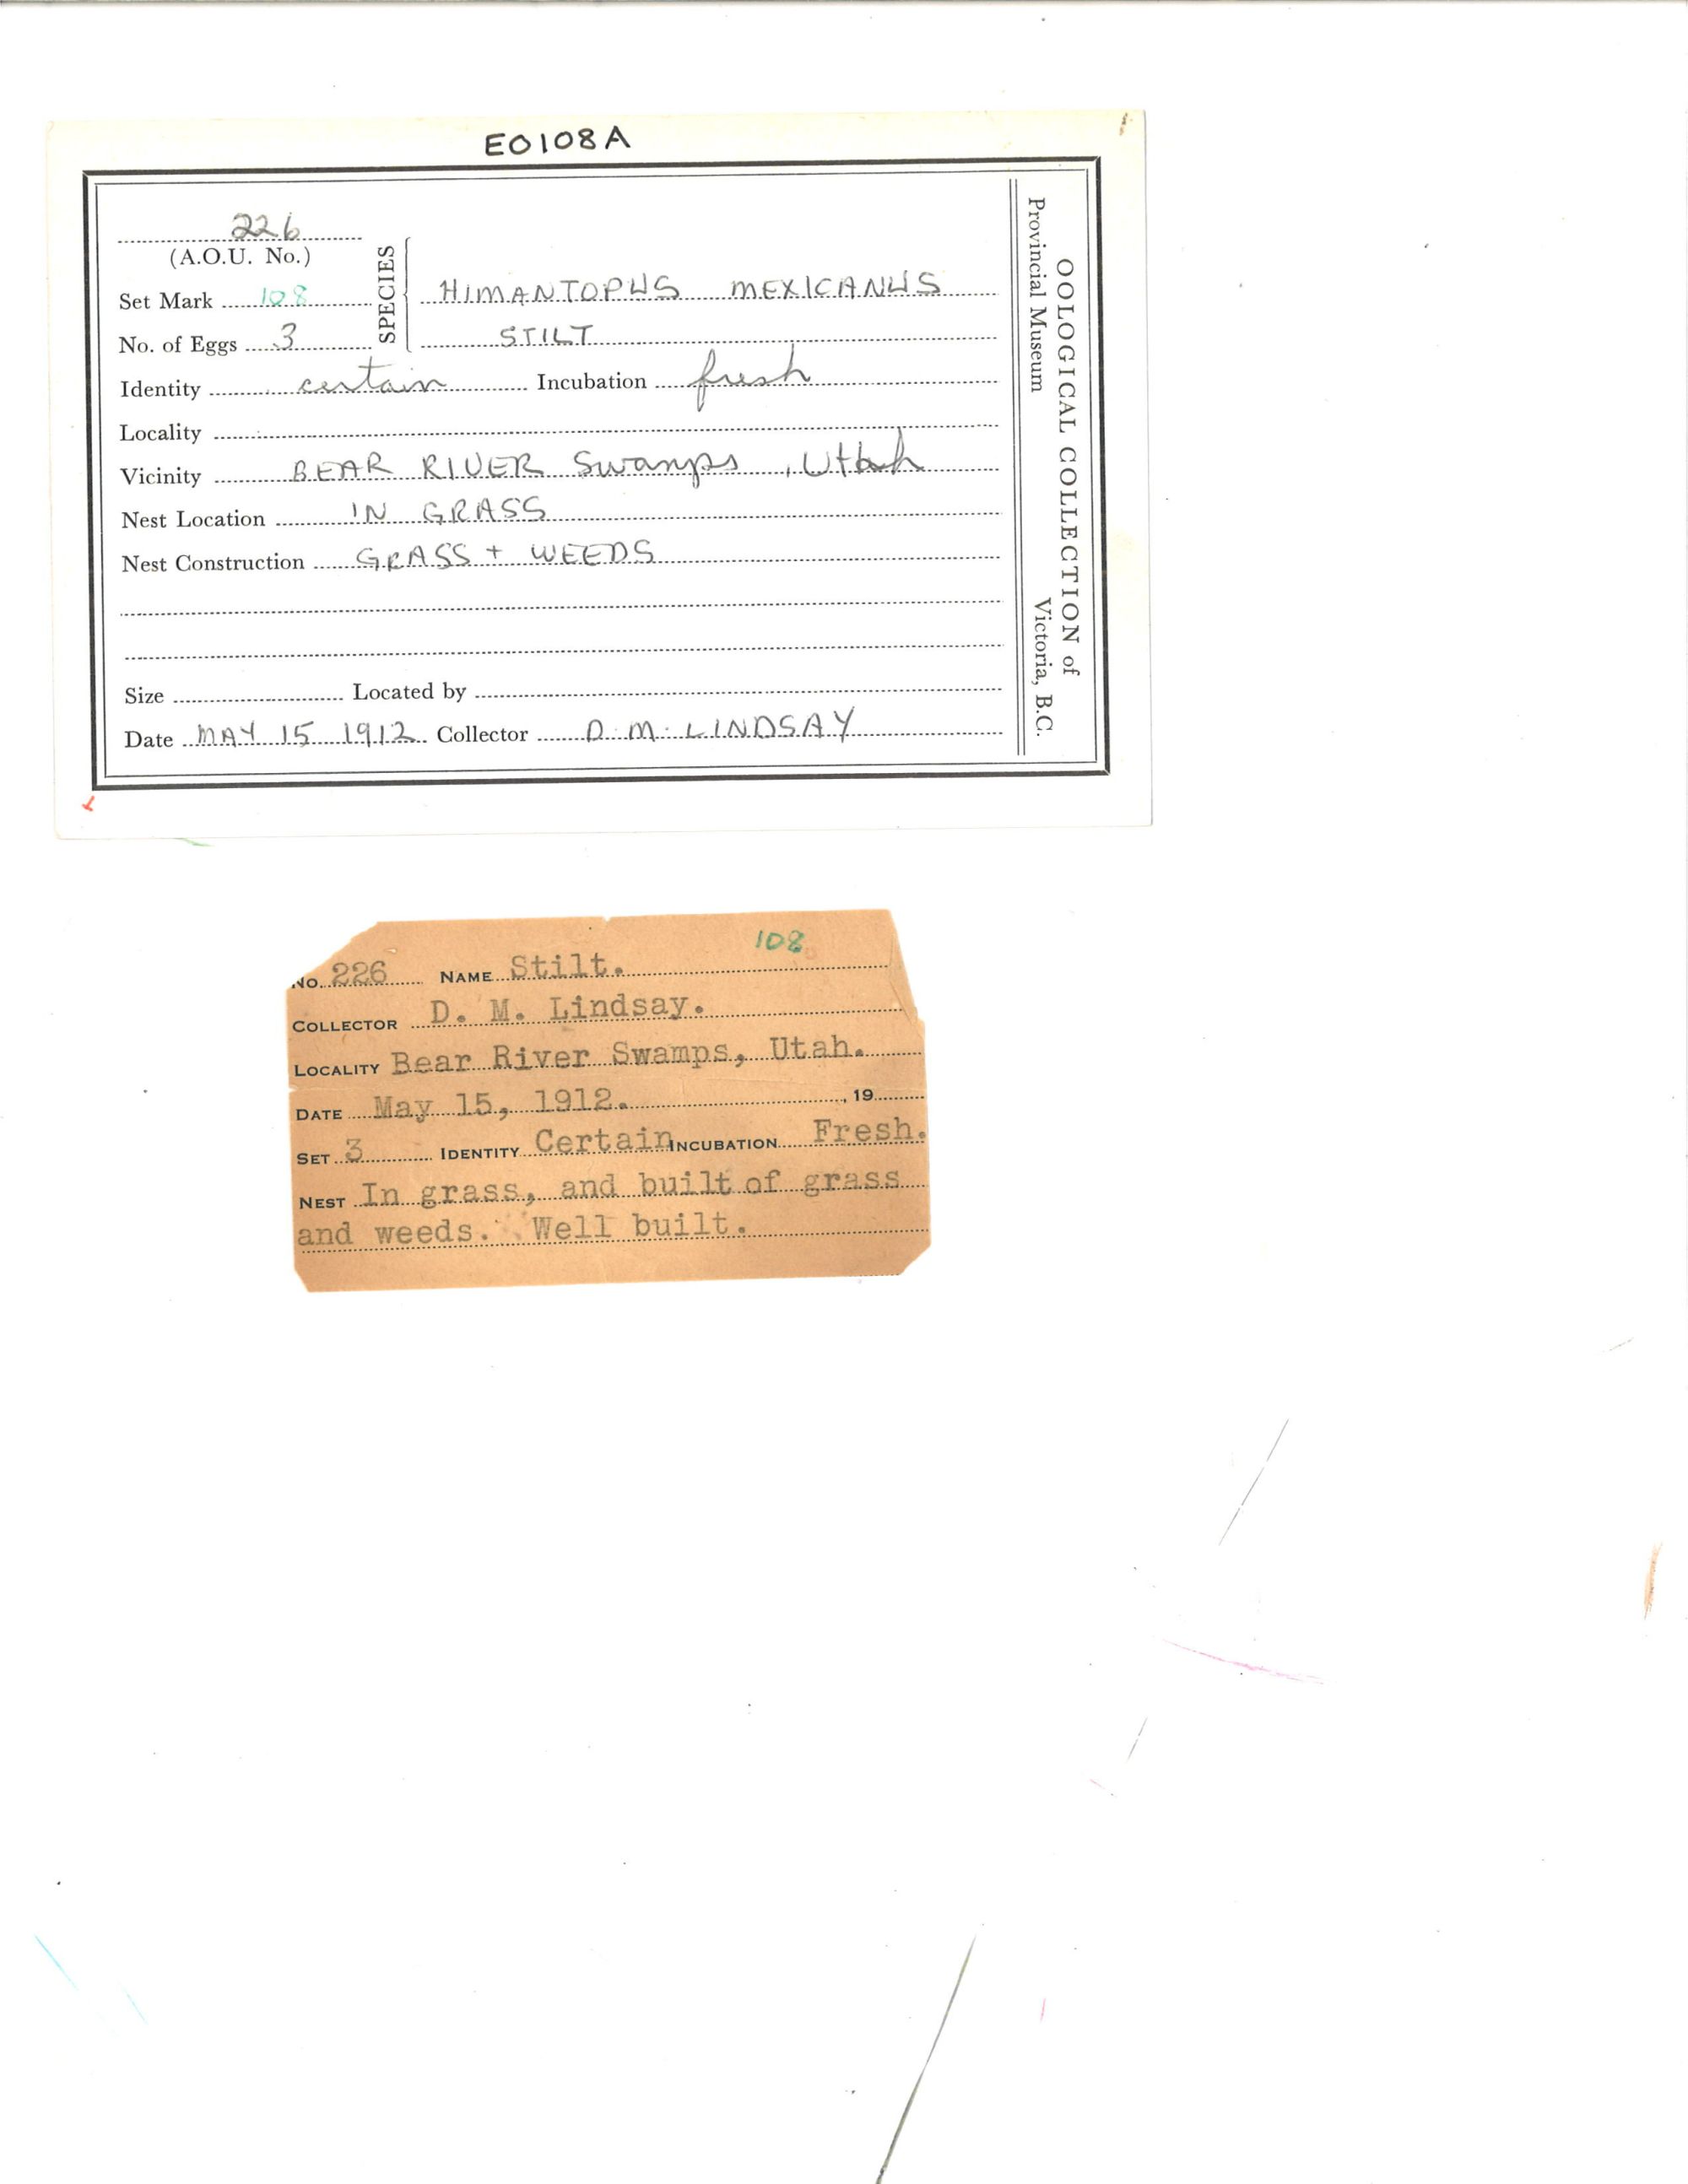 E0108A
226
(A.O.U. No.)
Set Mark 108
No. of Eggs 3
SPECIES
HIMANTOPUS MEXICANUS
STILT
Identity certain Incubation fresh
Locality
Vicinity BEAR RIVER Swamps, Utah
Nest Location IN GRASS
Nest Construction GRASS + WEEDS
Size Located by
Date MAY 15 1912 Collector D. M. LINDSAY
OOLOGICAL COLLECTION of
Provincial Museum Victoria, B.C.
108
No. 226 NAME Stilt.
COLLECTOR D. M. Lindsay.
LOCALITY Bear River Swamps, Utah.
DATE May 15, 1912. , 19
SET 3 IDENTITY Certain INCUBATION Fresh.
NEST In grass, and built of grass
and weeds. Well built.